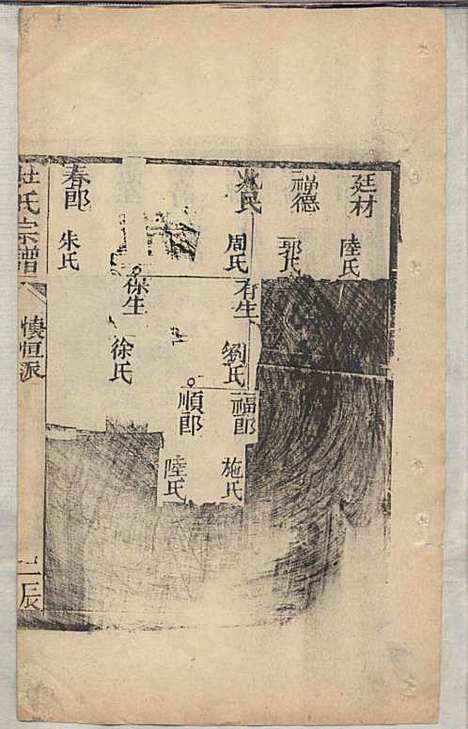 廷材 陸氏
福德 郭氏
民 周氏
有生 劉氏
福郎 施氏
順郎 陸氏
保生 徐氏
春郎 朱氏
杜氏宗譜
慎恒派
二辰